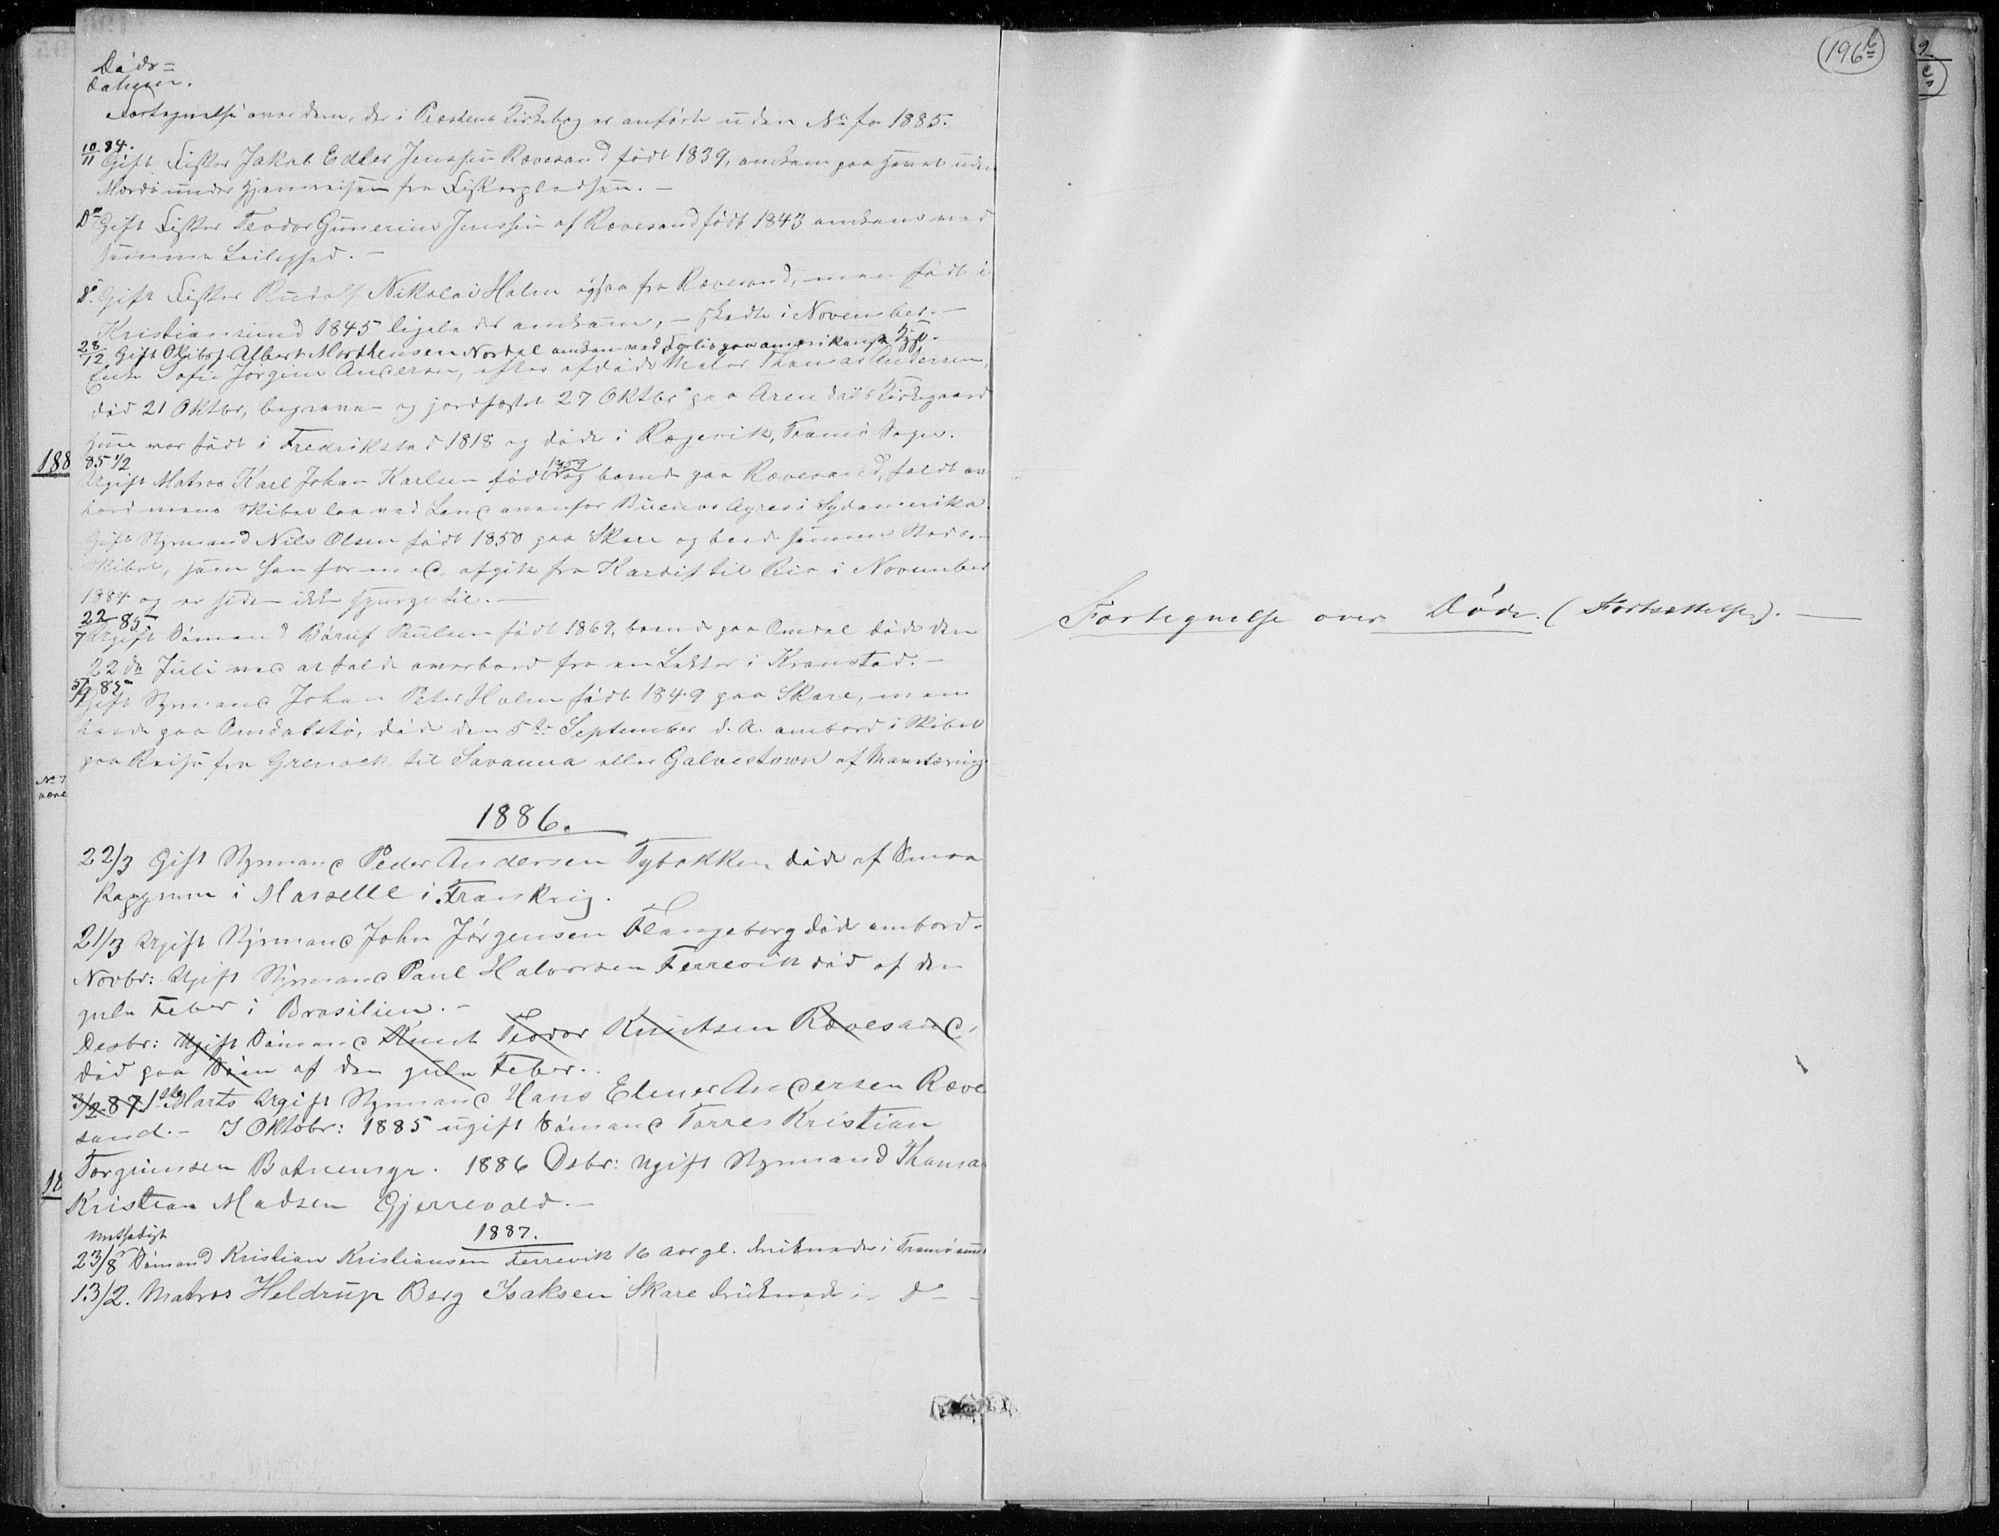 Døds=
datum.
Fortegnelse over dem, der i Præstens Kirkebog er anførte uden No for 1885.
10/11 84. Gift Fisker Jakob Edler Jenssen Rævesand født 1839, omkom paa Havet uden
Mærdø under Hjemreisen fra Fiskerpladsen. —
Do Gift Fisker Teodor Gunerius Jenssen af Rævesand født 1843 omkom ved
samme Leilighed. —
Do. Gift Fisker Rudolf Nikolai Holm ogsaa fra Rævesand, men født i
Kristiansund 1845 ligeledes omkom, — skedte i November. —
28/12 Gift Skibsf. Albert Morthensen Nordal omkom ved Forlis paa amerikansk Kyst.
Enke Sofie Jørgine Andersen, efter afdøde Maler Thomas Andersen,
død 21 Oktbr, begraven og jordfæstet 27 Oktbr paa Arendals Kirkegaard
Hun var født i Fredrikstad 1818 og døde i Rægevik, Tromø Sogn.
188
85 1/2
Ugift Matros Karl Johan Karlsen født 1859 og boende paa Rævesand, faldt over
bord mens Skibet laa ved Land ovenfor Buenos Ayres i Sydamerika.
Gift Styrmand Nils Olsen født 1850 paa Skare og boede samme Sted. —
Skibet, som han for med, afgik fra Kardif til Rio i November
1884 og er siden ikke spurgt til. —
22/7 85 Ugift Sømand Børuf Paulsen født 1869, boende paa Omdal døde den
22de Juli ved at falde overbord fra en Lekter i Kronstad. —
5/9 85 Gift Styrmand Johan Peter Holm født 1849 paa Skare, men
boede paa Omdalstø, død den 5te September d. A. ombord i Skibet
paa Reise fra Grenock til Savanna eller Galvestown af Mavetæring.
No 7
1886.
22/3 Gift Styrmand Peder Andersen Tybakken døde af Smaa
kopperne i Marselle i Frankrig.
21/3 Ugift Styrmand John Jørgensen Flangeborg døde ombord.
Novbr: Ugift Styrmand Paul Halvorsen Ferrevik død af den
gule Feber i Brasilien. —
Desbr: Ugift Sømand Knut Teodor Knutsen Rævesand,
død paa Søen af den gule Feber.
3/2 87 1ste Marts Ugift Styrmand Hans Elmer Andersen Ræve
sand. — I Oktobr: 1885 ugift Sømand Torres Kristian
Torgrimsen Botnemyr. 1886 Osbr: Ugift Styrmand Thomas
18
Kristian Madsen Gjerrevald. —
1887.
23/8 Sømand Kristian Kristiansen Ferrevik 16 Aar gl. druknede i Tromøsund
13/2. Matros Heldrup Berg Isaksen Skare druknede i do —
196b
Fortegnelse over Døde. (Fortsættelse). —